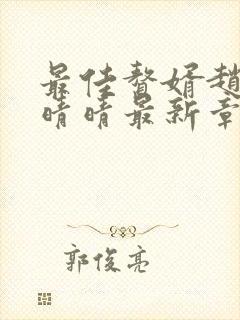 最佳赘婿赵
晴晴最新章
郭俊亮